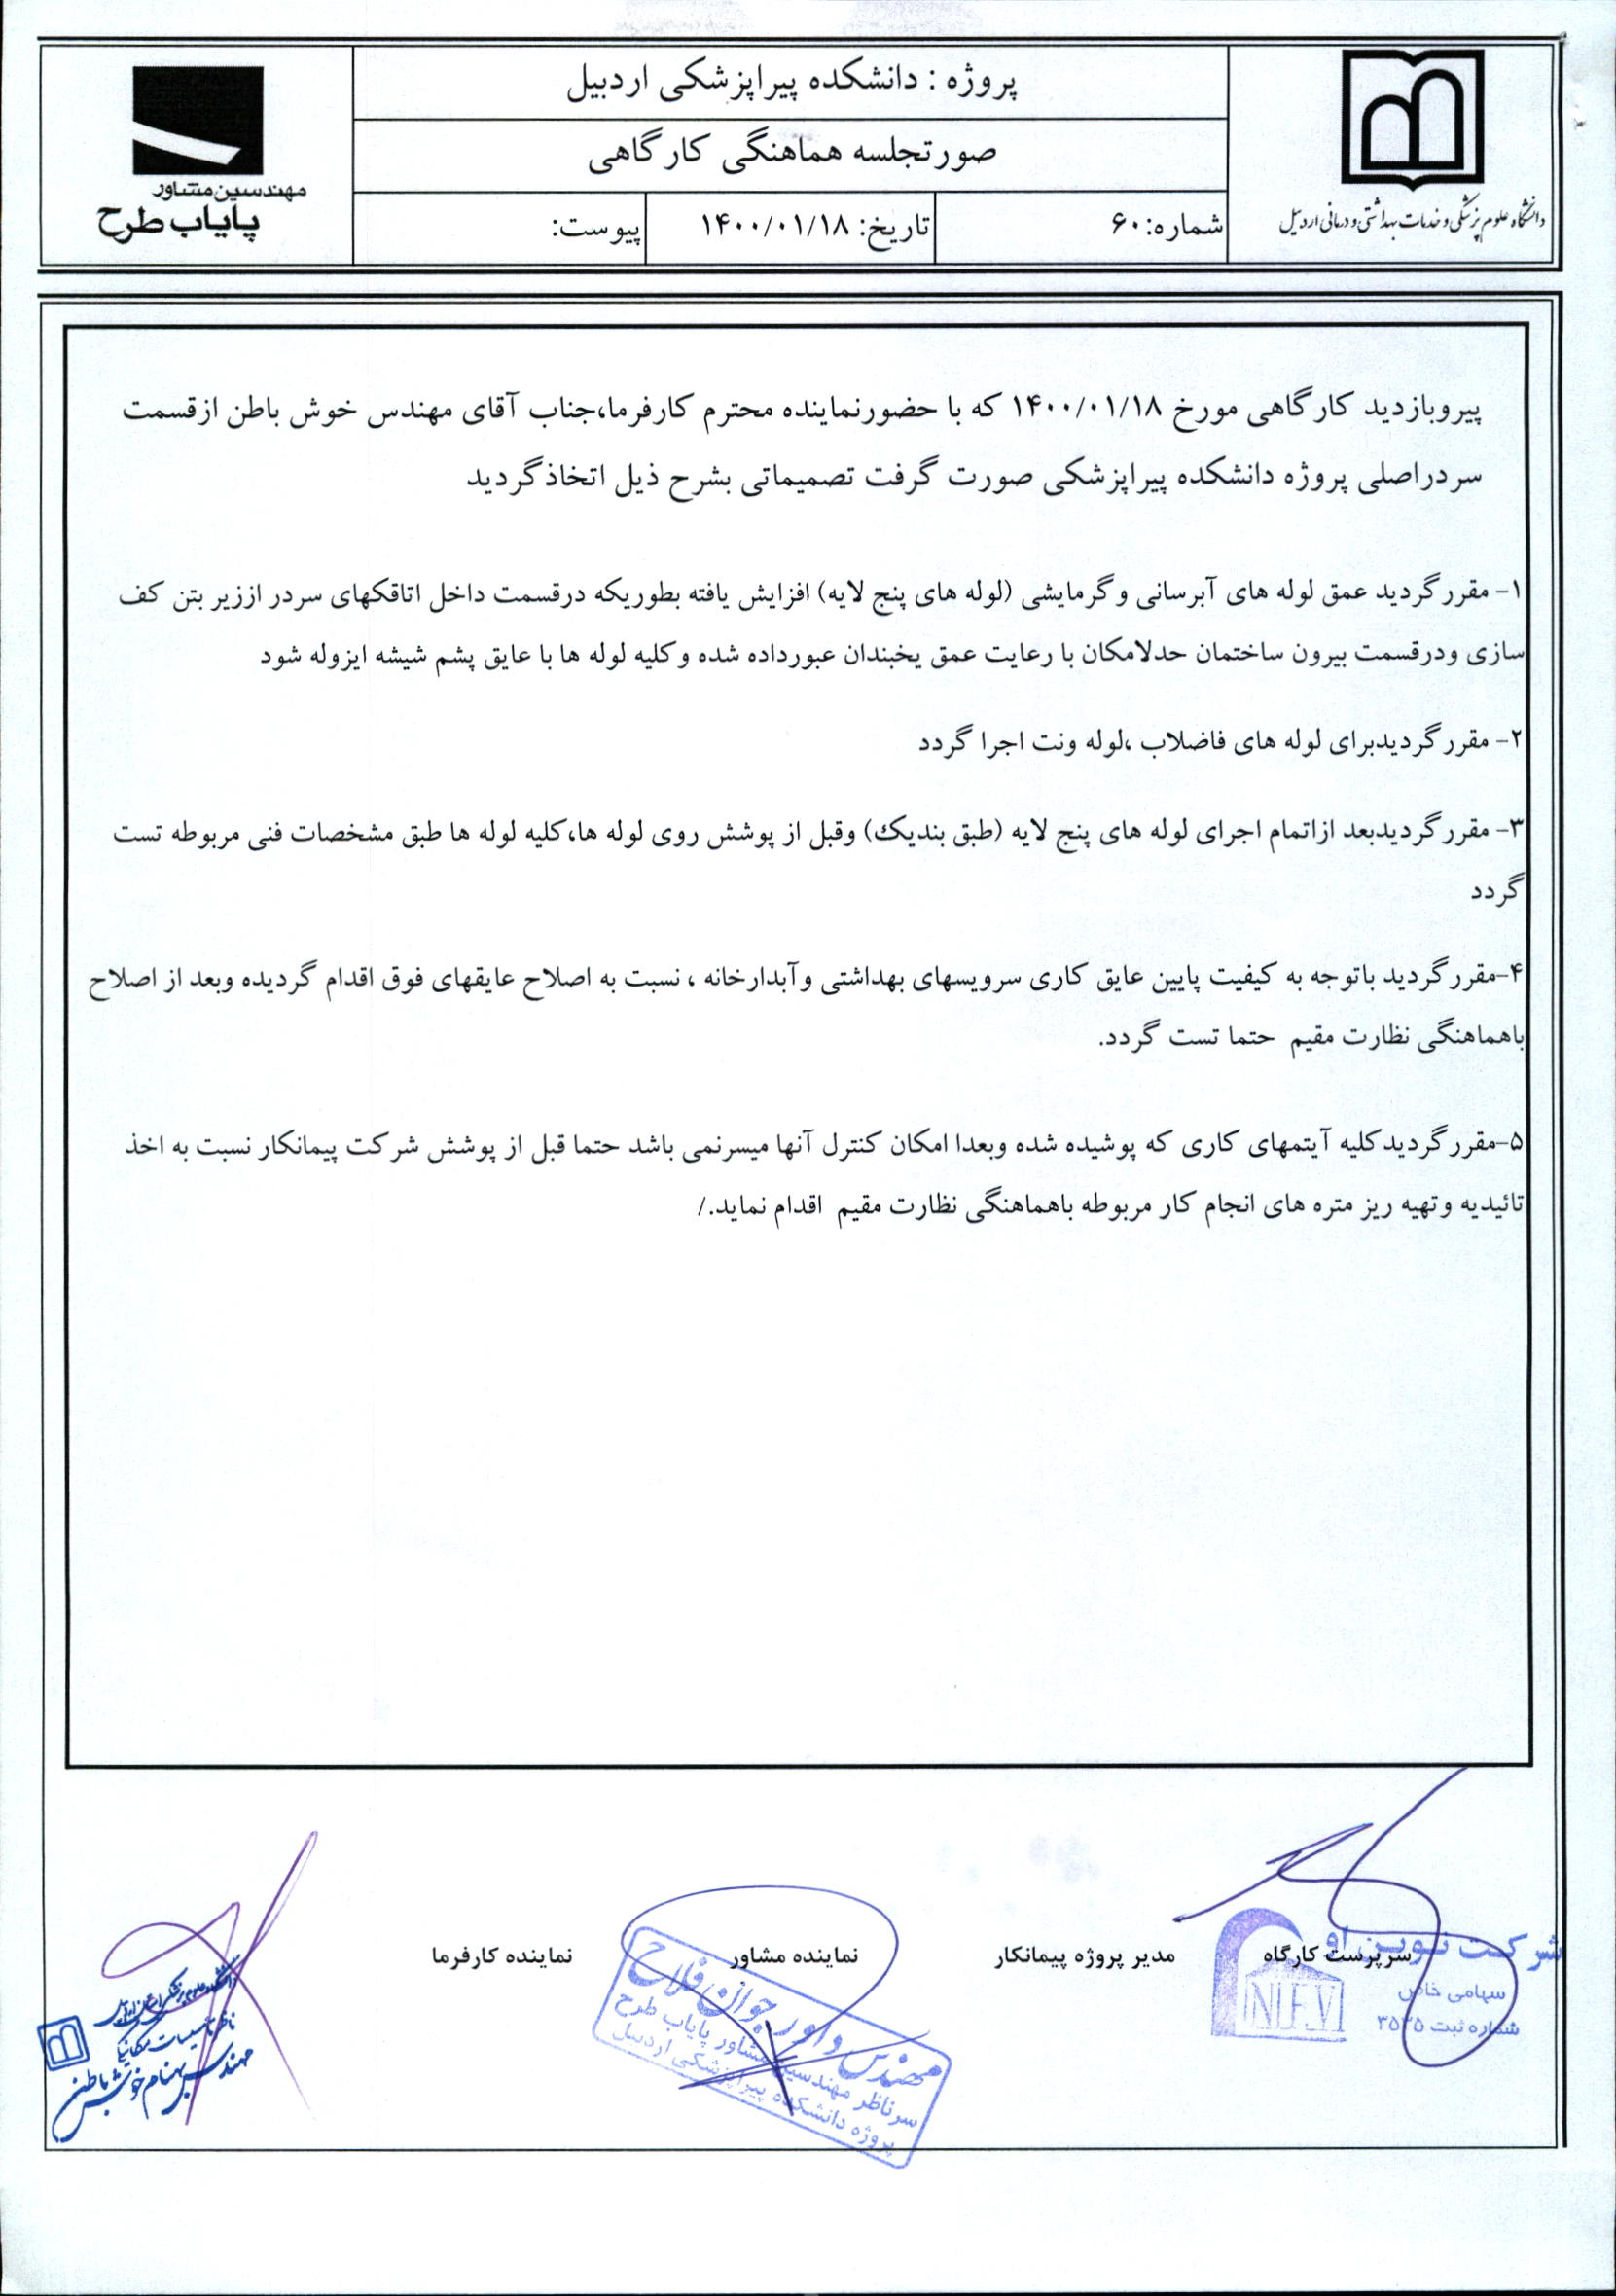 پروژه : دانشکده پیراپزشکی اردبیل
صورتجلسه هماهنگی کارگاهی
شماره:۶۰
تاریخ: ۱۴۰۰/۰۱/۱۸
پیوست:
دانشگاه علوم پزشکی و خدمات بهداشتی و درمانی اردبیل
مهندسین مشاور
پایاب طرح
پیروبازدید کارگاهی مورخ ۱۴۰۰/۰۱/۱۸ که با حضورنماینده محترم کارفرما،جناب آقای مهندس خوش باطن ازقسمت
سردراصلی پروژه دانشکده پیراپزشکی صورت گرفت تصمیماتی بشرح ذیل اتخاذگردید
۱- مقررگردید عمق لوله های آبرسانی وگرمایشی (لوله های پنج لایه) افزایش یافته بطوریکه درقسمت داخل اتاقکهای سردر اززیر بتن کف
سازی ودرقسمت بیرون ساختمان حدلامکان با رعایت عمق یخبندان عبورداده شده وکلیه لوله ها با عایق پشم شیشه ایزوله شود
۲- مقررگردیدبرای لوله های فاضلاب ،لوله ونت اجرا گردد
۳- مقررگردیدبعد ازاتمام اجرای لوله های پنج لایه (طبق بندیک) وقبل از پوشش روی لوله ها،کلیه لوله ها طبق مشخصات فنی مربوطه تست
گردد
۴-مقررگردید باتوجه به کیفیت پایین عایق کاری سرویسهای بهداشتی وآبدارخانه ، نسبت به اصلاح عایقهای فوق اقدام گردیده وبعد از اصلاح
باهماهنگی نظارت مقیم حتما تست گردد.
۵-مقررگردیدکلیه آیتمهای کاری که پوشیده شده وبعدا امکان کنترل آنها میسرنمی باشد حتما قبل از پوشش شرکت پیمانکار نسبت به اخذ
تائیدیه وتهیه ریز متره های انجام کار مربوطه باهماهنگی نظارت مقیم اقدام نماید./
سرپرست کارگاه
مدیر پروژه پیمانکار
نماینده مشاور
نماینده کارفرما
شرکت نوین
سهامی خاص
شماره ثبت ۳۵۲۵
مهندس داور جوان فلاح
سرناظر مهندسین مشاور پایاب طرح
پروژه دانشکده پیراپزشکی اردبیل
ناظر تاسیسات مکانیکی
مهندس بهنام خوش باطن